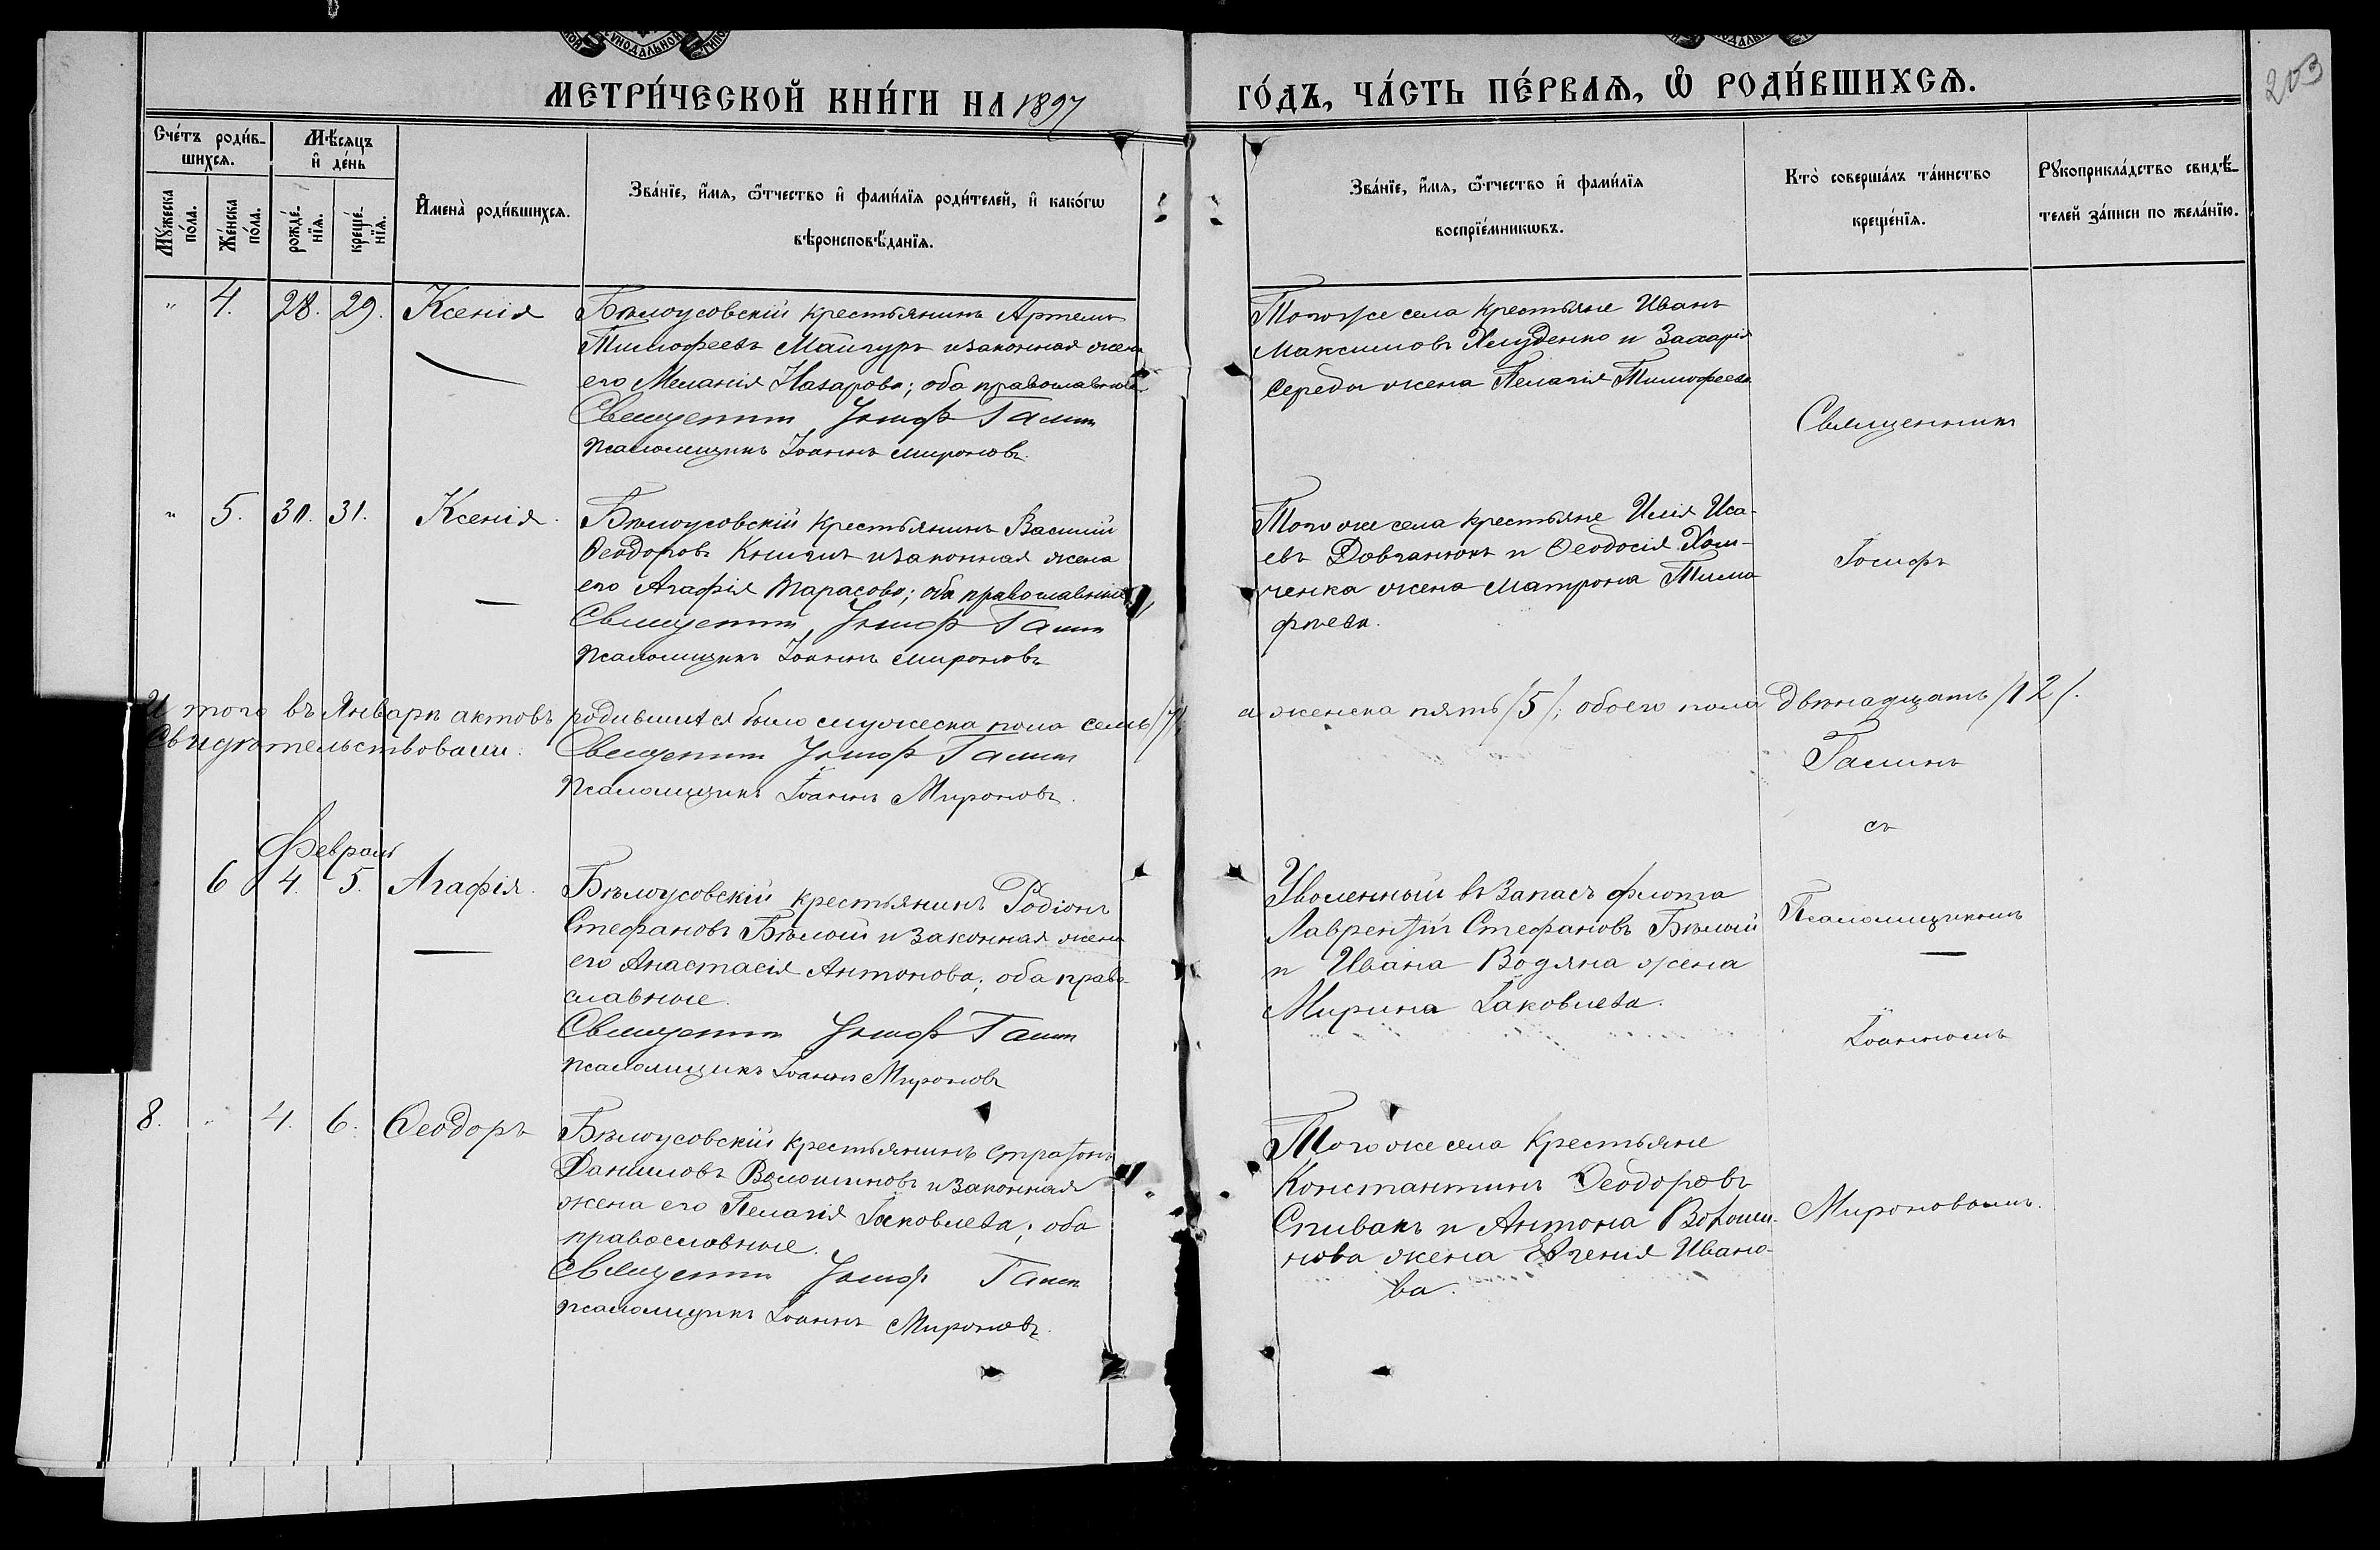 МЕТРИ́ЧЕСКОЙ КНИ́ГИ НА 1897 ГО́ДЪ, ЧА́СТЬ ПЕ́РВАѦ, Ѽ РОДИ́ВШИХСѦ.
203
Сче́тъ роди́в-
шихсѧ.
Мѣ́сѧцъ
и҆ де́нь
Мꙋ́жеска
по́ла.
Же́нска
по́ла.
рожде́-
нїѧ.
креще́-
нїѧ.
И҆мена̀ роди́вшихсѧ.
Зва́нїе, и҆́мѧ, ѻ҆́тчество и҆ фами́лїѧ роди́телей, и҆ како́гѡ
вѣроисповѣ́данїѧ.
Зва́нїе, и҆́мѧ, ѻ҆́тчество и҆ фами́лїѧ
воспрїе́мникѡвъ.
Кто̀ соверша́лъ та́инство
креще́нїѧ.
Рꙋкоприкла́дство свидѣ́-
телей за́писи по жела́нїю.
" 4. 28. 29. Ксенія
Бѣлоусовскій крестьянинъ Артемъ
Тимофеевъ Майгуръ и законная жена
его Меланія Назарова; оба православные
Священникъ Іосифъ Галинъ
Псаломщикъ Іоаннъ Мироновъ.
Того же села крестьяне Иванъ
Максимовъ и Захарія
Середы жена Пелагія Тимофеева
Священникъ
" 5. 30. 31. Ксенія.
Бѣлоусовскій крестьянинъ Василій
Ѳеодоровъ и законная жена
его Агафія Тарасова; оба православные
Священникъ Іосифъ Галинъ
Псаломщикъ Іоаннъ Мироновъ
Того же села крестьяне Илія Иса-
евъ Довганюкъ и Ѳеодосія Хом-
ченка жена Матрона Тимо
фѣева.
Іосифъ
Итого въ Январѣ актовъ родившихся было мужеска пола семь /7/
а женска пять /5/; обоего пола двѣнадцать /12/.
Свидѣтельствовали: Священникъ Іосифъ Галинъ
Псаломщикъ Іоаннъ Мироновъ.
Галинъ
съ
Февраль
6 4. 5. Агафія.
Бѣлоусовскій крестьянинъ Родіонъ
Стефановъ Бѣлый и законная жена
его Анастасія Антонова; оба право-
славные.
Священникъ Іосифъ Галинъ
Псаломщикъ Іоаннъ Мироновъ
Уволенный въ запасъ флота
Лаврентій Стефановъ Бѣлый
и Ивана Водяна жена
Мирина Іаковлева.
Псаломщикомъ
Іоанномъ
8. " 4. 6. Ѳеодоръ
Бѣлоусовскій крестьянинъ Стратонъ
Даниловъ Волошиновъ и законная
жена его Пелагія Іаковлева; оба
православные.
Священникъ Іосифъ Галинъ
Псаломщикъ Іоаннъ Мироновъ.
Того же села крестьяне
Константинъ Ѳеодоровъ
Спивакъ и Антона Волоши-
нова жена Евгенія Ивано-
ва.
Мироновымъ.